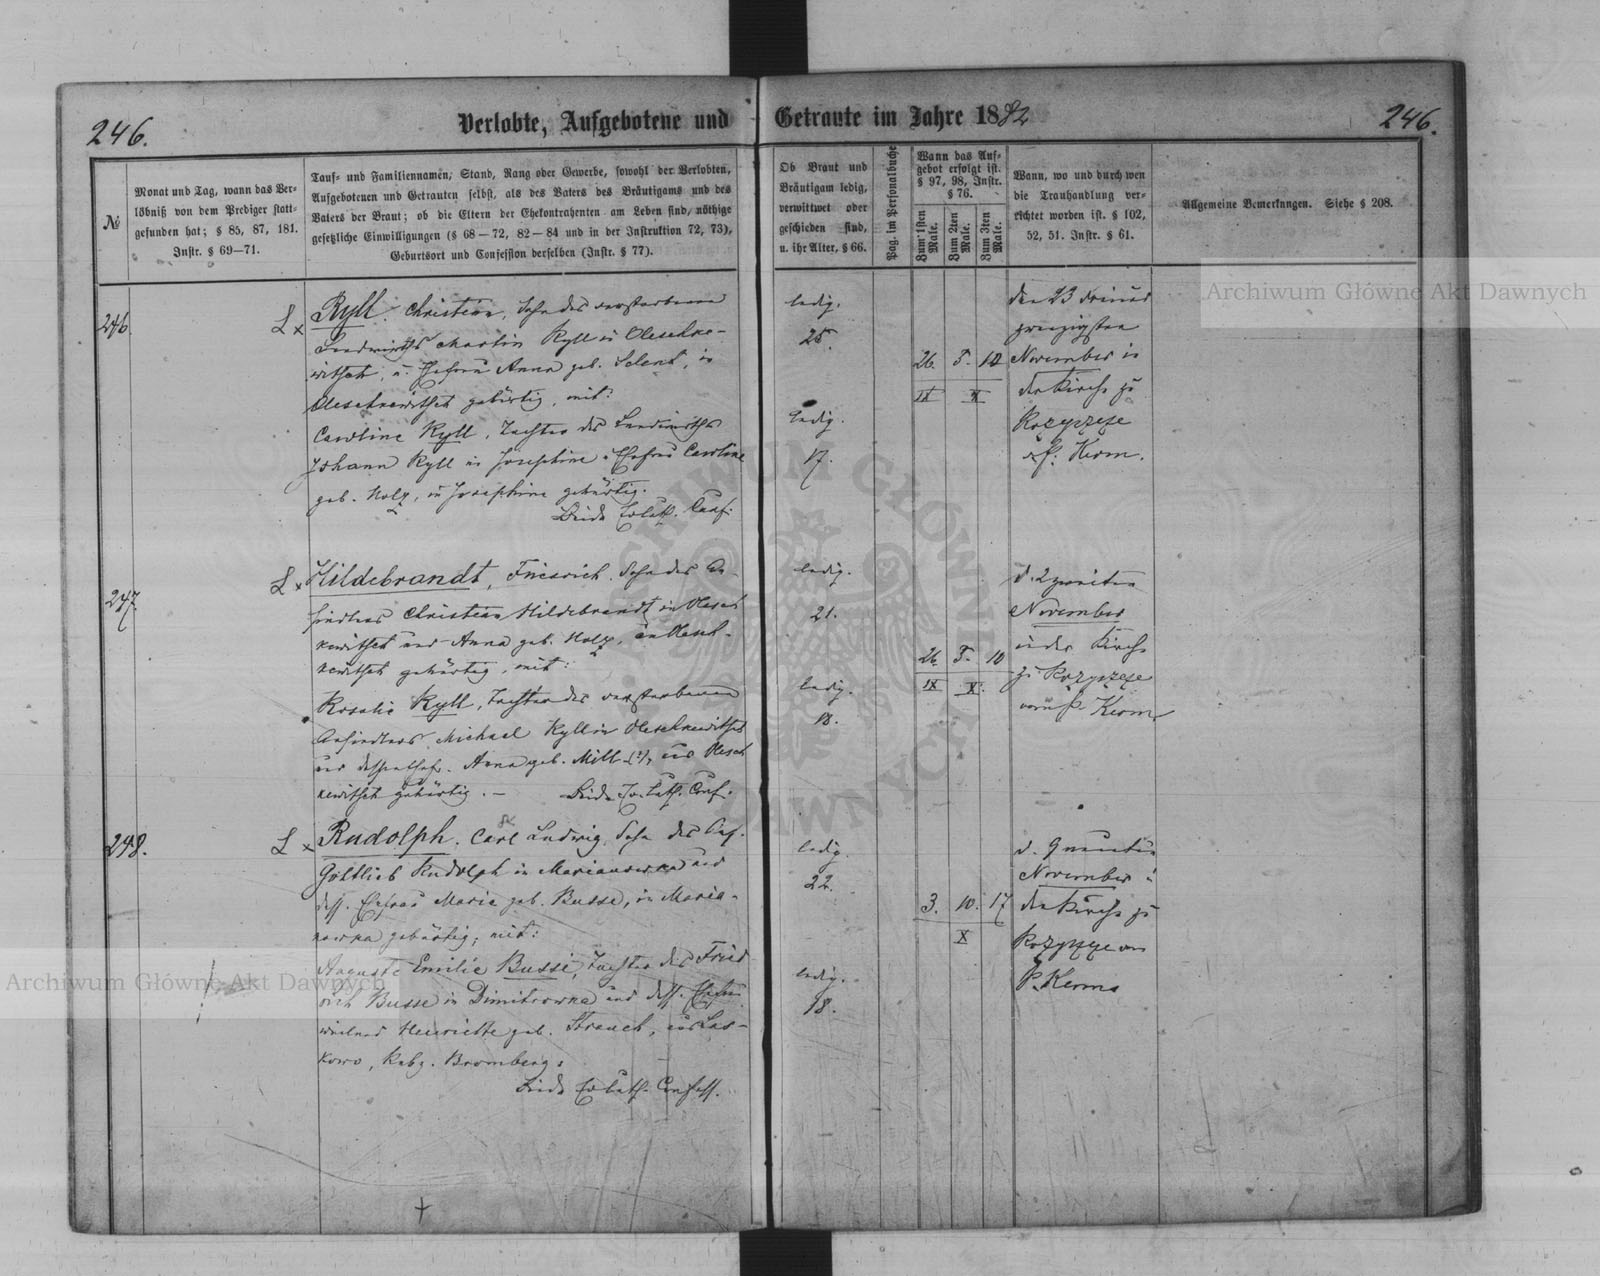 246.
Verlobte, Aufgebotene und Getraute im Jahre 1882
246.
№
Monat und Tag, wann das Ver-
löbniß von dem Prediger statt-
gefunden hat; § 85, 87, 181.
Instr. § 69—71.
Tauf- und Familiennamen, Stand, Rang oder Gewerbe, sowohl der Verlobten,
Aufgebotenen und Getrauten selbst, als des Vaters des Bräutigams und des
Vaters der Braut; ob die Eltern der Ehekontrahenten am Leben sind, nöthige
gesetzliche Einwilligungen (§ 68—72, 82—84 und in der Instruktion 72, 73),
Geburtsort und Confession derselben (Instr. § 77).
Ob Braut und
Bräutigam ledig,
verwittwet oder
geschieden sind,
u. ihr Alter, § 66.
Pag. im Personalbuche
Wann das Auf-
gebot erfolgt ist.
§ 97, 98, Instr.
§ 76.
Zum 1sten
Male.
Zum 2ten
Male.
Zum 3ten
Male.
Wann, wo und durch wen
die Trauhandlung ver-
richtet worden ist. § 102,
52, 51. Instr. § 61.
Allgemeine Bemerkungen. Siehe § 208.
246
L x
Ryll, Christian, Sohn des verstorbenen
Landwirths Martin Ryll in Oleschke-
witsch, u. Ehefrau Anna geb. Selent, in
Oleschkewitsch gebürtig, mit:
Caroline Ryll, Tochter des Landwirths
Johann Ryll in Josephine u Ehefrau Caroline
geb. Holz, in Josephine gebürtig.
Beide Ev. luth. Conf.
ledig.
25.
ledig.
17.
26. 3. 10
IX X
den 23 dreiund
zwanzigsten
November in
der Kirche zu
Rozyszcze
P. Kerm.
247
L x
Hildebrandt, Friedrich, Sohn des An-
siedlers Christian Hildebrandt in Olesch
kewitsch und Anna geb. Holz, in Olesch-
kewitsch gebürtig, mit:
Rosalie Ryll, Tochter des verstorbenen
Ansiedlers Michael Ryll in Oleschkewitsch
und Anna geb. Mill (?), aus Olesch
kewitsch gebürtig. —
Beide Ev. luth. Conf.
ledig.
21.
ledig.
18.
26. 3. 10
IX X.
d. 2 zweiten
November
in der Kirche
zu Rozyszcze
vom P. Kerm
248.
L x
Rudolph, Carl Ludwig, Sohn des Ans.
Gottlieb Rudolph in Marianowka und
dess. Ehefrau Marie geb. Busse, in Maria-
nowka gebürtig, mit:
Auguste Emilie Busse, Tochter des Fried
rich Busse in Dimitrowka und dess. Ehefrau
Henriette geb. Strauch, aus Las-
kowo, Rebz. Bromberg.
Beide Ev luth. Confess.
ledig.
22.
ledig.
18.
3. 10. 17
X
d. 9 neunten
November i
der Kirche zu
Rozyszcze von
P. Kerm
Archiwum Główne Akt Dawnych
Archiwum Główne Akt Dawnych
ARCHIWUM GŁÓWNE AKT DAWNYCH